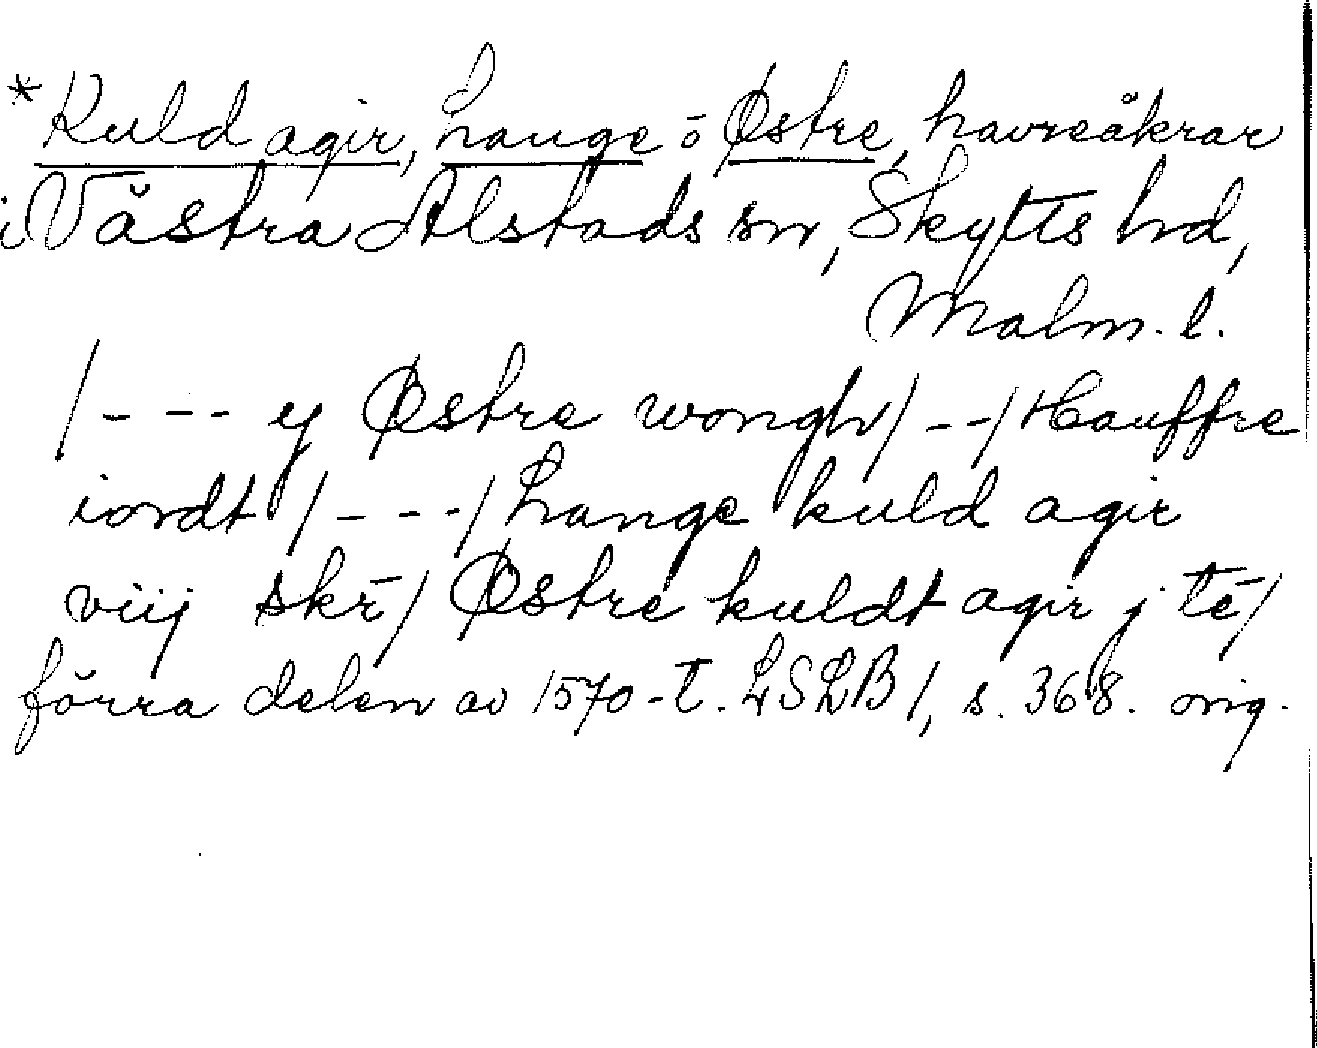 *Kuld agir, Lange o Østre, havreåkrar
i Västra Alstads sn, Skytts hd,
Malm. l.
/- - - ej Østre wongh/ - -/ Hauffre
iordt / - - -/ Lange kuld agir
viij skr̄/ Østre kuldt agir j tē/
förra delen av 1570-t. LSLB 1, s. 368. orig.